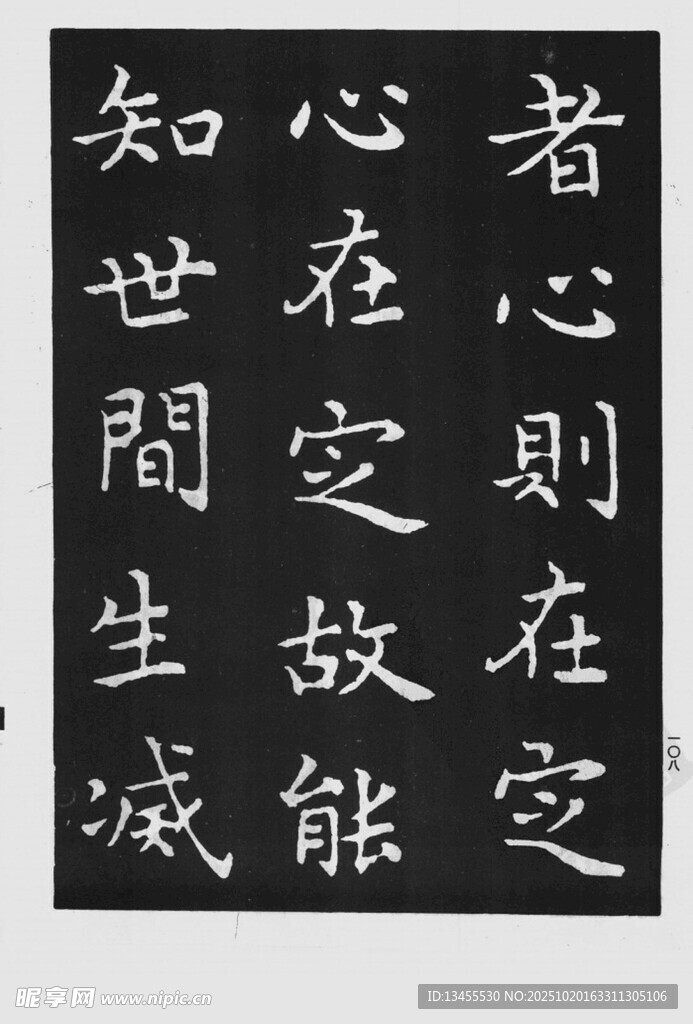 者心則在定
心在定故能
知世間生滅
一〇八
昵享网 www.nipic.cn
ID:13455530 NO:20251020163311305106